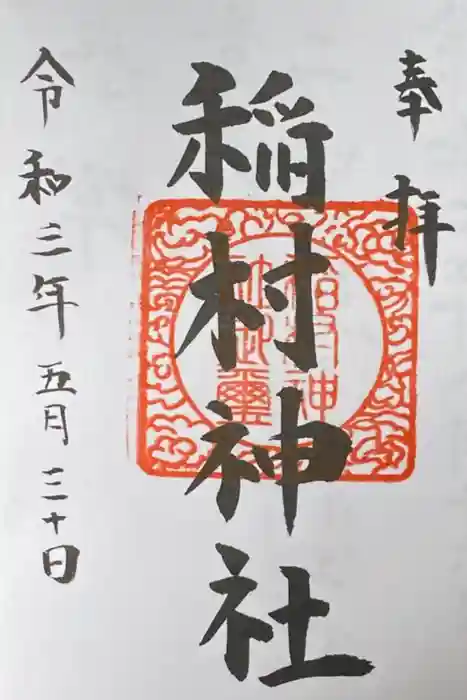 奉拝
稲村神社
令和三年五月三十日